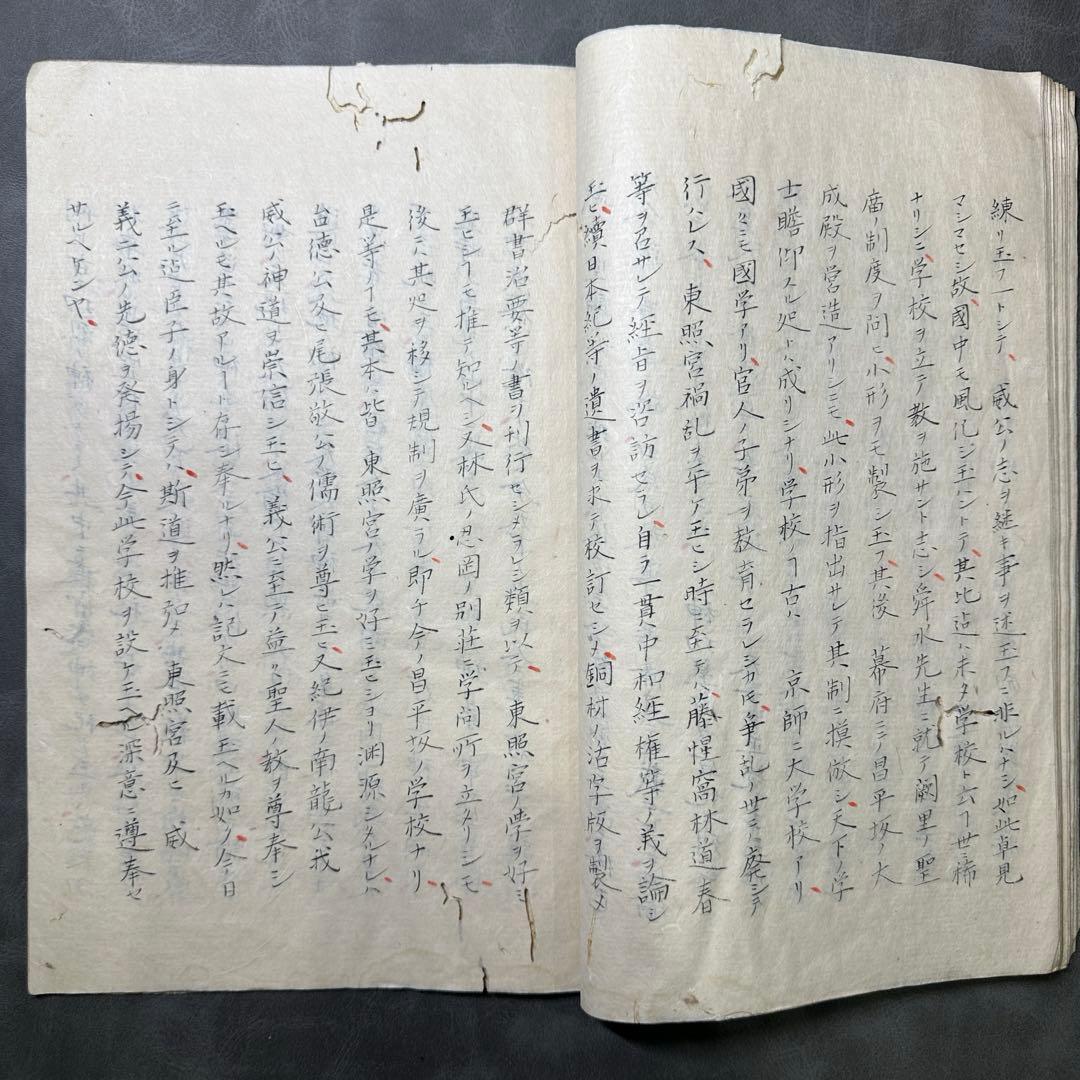 練リ玉フヿトシテ、威公ノ志ヲ継キ事ヲ述玉フニ非ルハナシ、如此卓見
マシマセシ故、國中モ風化シ玉ハントテ、其比迠ハ未タ学校ト云ヿ世ニ稀
ナリシニ、学校ヲ立テ教ヲ施サント志シ、舜水先生ニ就テ闕里ノ聖
廟ノ制度ヲ問ヒ、小形ヲモ製シ玉フ、其後 幕府ニテ昌平坂ノ大
成殿ヲ営造アリシニモ、此小形ヲ指出サレテ其制ニ摸倣シ、天下ノ学
士瞻仰スル処トハ成リシナリ、学校ノヿ古ハ 京師ニ大学校アリ、
國々ニモ國学アリ、官人ノ子弟ヲ教育セラレシカ𪜈、争乱ノ世ニハ廃シテ
行ハレス、 東照宮禍乱ヲ平ケ玉ヒシ時ニ至テハ、藤惺窩林道春
等ヲ召サレテ経旨ヲ咨訪セラレ、自ラ一貫中和経権等ノ義ヲ論シ
玉ヒ、續日本紀等ノ遺書ヲ求テ校訂セシメ、銅材ノ活字版ヲ製メ
群書治要等ノ書ヲ刊行セシメラレシ類ヲ以テ、東照宮ノ学ヲ好ミ
玉ヒシヿモ推テ知ルヘシ、又林氏ノ忍岡ノ別荘ニ学問所ヲ立タリシモ、
後ニハ其処ヲ移シテ規制ヲ廣ラル、即チ今ノ昌平坂ノ学校ナリ、
是等ノヿモ、其本ハ皆 東照宮ノ学ヲ好ミ玉ヒシヨリ渕源シタルナレハ、
台徳公及ヒ尾張敬公ノ儒術ヲ尊ヒ玉ヒ、又紀伊ノ南龍公我
威公ノ神道ヲ崇信シ玉ヒ、義公ニ至テ益々聖人ノ教ヲ尊奉シ
玉ヘルモ其故アルヿト存シ奉ルナリ、然レハ記文ニモ載玉ヘルカ如ク、今ノ日
ニ至ル迠臣子ノ身トシテハ、斯道ヲ推弘メ、東照宮及ヒ 威
義二公ノ先徳ヲ発揚シテ、今此学校ヲ設ケ玉ヘル深意ニ遵奉セ
サルヘケンヤ、